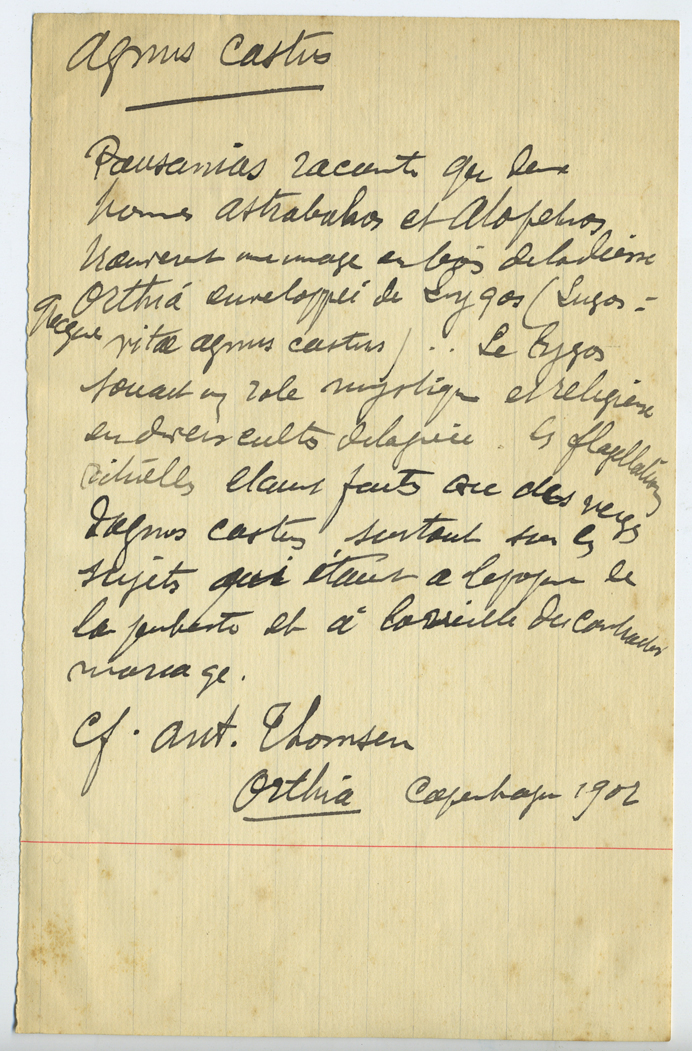 Agnus Castus
Pausanias raconte que deux
homes Astrabakos et Alopekos
trouverent une image en bois de la déesse
Orthiá enveloppéi de Lygos (Lugos =
grecque vitæ agnus castus) .. Le Lygos
jouait un role mystique et religieux
en divers cultes de la grèce . les flagellations
rituelles étant faits avec des verges
d'agnus castus surtout sur les
sujets qui étaient a l'epoque de
la puberté et à la veille de contracter
mariage.
Cf. Ant. Thomsen
Orthia Copenhague 1902